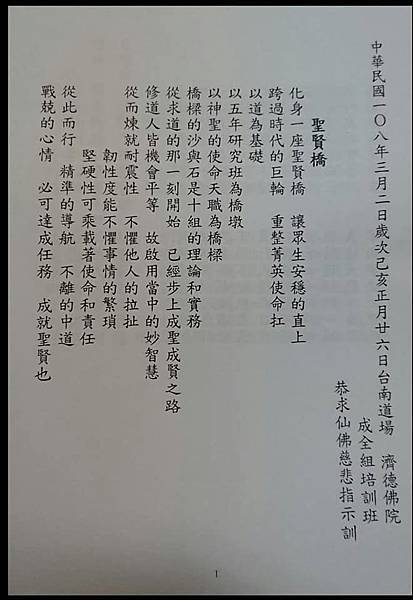 中華民國一〇八年三月二日歲次己亥正月廿六日台南道場　濟德佛院
成全組培訓班
恭求仙佛慈悲指示訓
聖賢橋
化身一座聖賢橋　讓眾生安穩的直上
跨過時代的巨輪　重整菁英使命扛
以道為基礎
以五年研究班為橋墩
以神聖的使命天職為橋樑
橋樑的沙與石是十組的理論和實務
從求道的那一刻開始　已經步上成聖成賢之路
修道人皆機會平等　故啟用當中的妙智慧
從而煉就耐震性　不懼他人的拉扯
韌性度能不懼事情的繁瑣
堅硬性可乘載著使命和責任
從此而行　精準的導航　不離的中道
戰兢的心情　必可達成任務　成就聖賢也
1